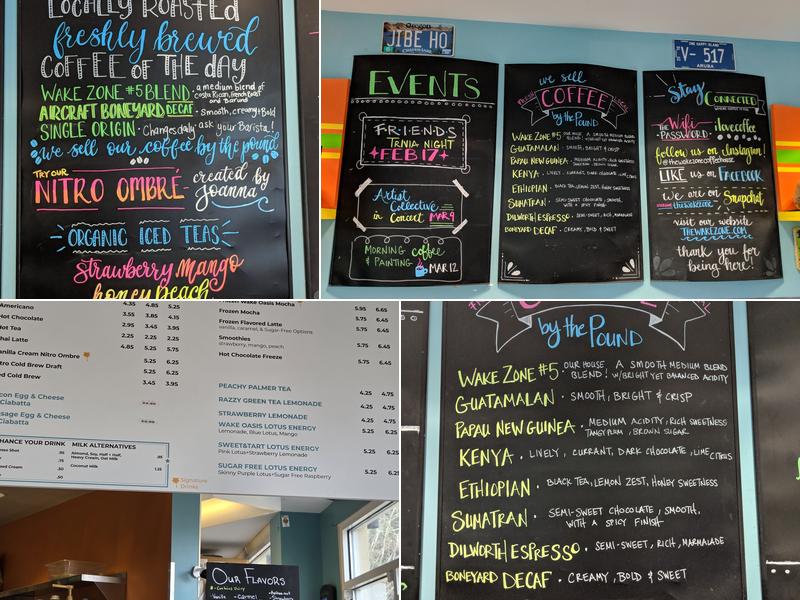 LOCALLY ROASTED
freshly brewed
COFFEE OF THE day
WAKE ZONE #5 BLEND · a medium blend of
Costa Rican, french Roast
and Barund
AIRCRAFT BONEYARD DECAF · Smooth, creamy & Bold
SINGLE ORIGIN · Changes daily, ask your Barista!
we sell our coffee by the pound
TRY OUR
NITRO OMBRÉ - created by
Joanna
ORGANIC ICED TEAS
Strawberry Mango
honey peach
Oregon
JTBE HO
ONE HAPPY ISLAND
V- 517
ARUBA
EVENTS
F·R·I·E·N·D·S
TRIVIA NIGHT
FEB 17
Artist
Collective
in Concert MAR 9
MORNING coffee
& PAINTING MAR 12
we sell
COFFEE
by the POUND
WAKE ZONE #5 · OUR HOUSE BLEND! A SMOOTH MEDIUM BLEND
GUATAMALAN · SMOOTH, BRIGHT & CRISP
PAPAU NEW GUINEA · MEDIUM ACIDITY, RICH SWEETNESS
TANGY PLUM, BROWN SUGAR
KENYA · LIVELY, CURRANT, DARK CHOCOLATE, LIME CITRUS
ETHIOPIAN · BLACK TEA, LEMON ZEST, HONEY SWEETNESS
SUMATRAN · SEMI-SWEET CHOCOLATE, SMOOTH,
WITH A SPICY FINISH
DILWORTH ESPRESSO · SEMI-SWEET, RICH, MARMALADE
BONEYARD DECAF · CREAMY, BOLD & SWEET
Stay
CONNECTED
THE Wifi
PASSWORD: ilovecoffee
follow us on Instagram!
@thewakezonecoffeehouse
LIKE us on FACEBOOK
we are on Snapchat
thewakezone
visit our website
THEWAKEZONE.COM
thank you for
being here!
Americano 4.35 4.85 5.25
Hot Chocolate 3.55 3.85 4.15
Hot Tea 2.95 3.45 3.95
Chai Latte 2.25 2.25 2.25
Vanilla Cream Nitro Ombre 4.85 5.25 5.75
Nitro Cold Brew Draft 5.25 6.25
Iced Cold Brew 5.25 6.25
3.45 3.95
Bacon Egg & Cheese
Ciabatta
Sausage Egg & Cheese
Ciabatta
ENHANCE YOUR DRINK
MILK ALTERNATIVES
Almond, Soy, Half + Half,
Heavy Cream, Oat Milk
Coconut Milk
Frozen Wake Oasis Mocha
Frozen Mocha 5.95 6.65
Frozen Flavored Latte 5.75 6.45
vanilla, caramel, & Sugar Free Options 5.75 6.45
Smoothies
strawberry, mango, peach 5.75 6.45
Hot Chocolate Freeze 5.75 6.45
PEACHY PALMER TEA 4.25 4.75
RAZZY GREEN TEA LEMONADE 4.25 4.75
STRAWBERRY LEMONADE 4.25 4.75
WAKE OASIS LOTUS ENERGY 5.25 6.25
Lemonade, Blue Lotus, Mango
SWEET&TART LOTUS ENERGY 5.25 6.25
Pink Lotus+Strawberry Lemonade
SUGAR FREE LOTUS ENERGY 5.25 6.25
Skinny Purple Lotus+Sugar Free Raspberry
Signature
Drinks
OUR FLAVORS
Vanilla
Caramel
by the POUND
WAKE ZONE #5 · OUR HOUSE BLEND! A SMOOTH MEDIUM BLEND
W/ BRIGHT YET BALANCED ACIDITY
GUATAMALAN · SMOOTH, BRIGHT & CRISP
PAPAU NEW GUINEA · MEDIUM ACIDITY, RICH SWEETNESS
TANGY PLUM, BROWN SUGAR
KENYA · LIVELY, CURRANT, DARK CHOCOLATE, LIME CITRUS
ETHIOPIAN · BLACK TEA, LEMON ZEST, HONEY SWEETNESS
SUMATRAN · SEMI-SWEET CHOCOLATE, SMOOTH,
WITH A SPICY FINISH
DILWORTH ESPRESSO · SEMI-SWEET, RICH, MARMALADE
BONEYARD DECAF · CREAMY, BOLD & SWEET